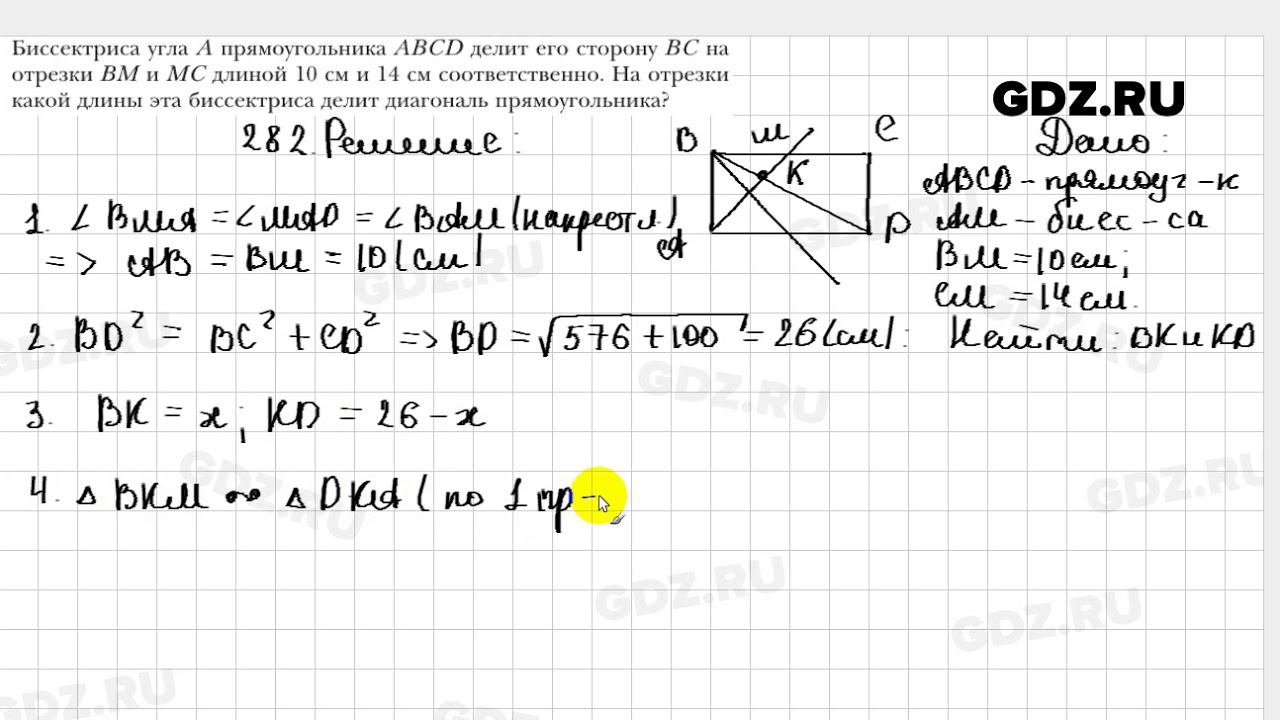 Биссектриса угла A прямоугольника ABCD делит его сторону BC на
отрезки BM и MC длиной 10 см и 14 см соответственно. На отрезки
какой длины эта биссектриса делит диагональ прямоугольника?
GDZ.RU
282. Решение:
B M C
K
A D
Дано:
ABCD – прямоуг-к
AM – бисс-са
BM = 10 см;
CM = 14 см.
Найти: BK и KD
1. ∠BMA = ∠MAD = ∠BAM (накрест л)
=> AB = BM = 10 (см)
2. BD² = BC² + CD² => BD = √576 + 100 = 26 (см):
3. BK = x; KD = 26 – x
4. △ BKM ∾ △ DKA ( по 1 пр –
GDZ.RU
GDZ.RU
GDZ.RU
GDZ.RU
GDZ.RU
GDZ.RU
GDZ.RU
GDZ.RU
GDZ.RU
GDZ.RU
GDZ.RU
GDZ.RU